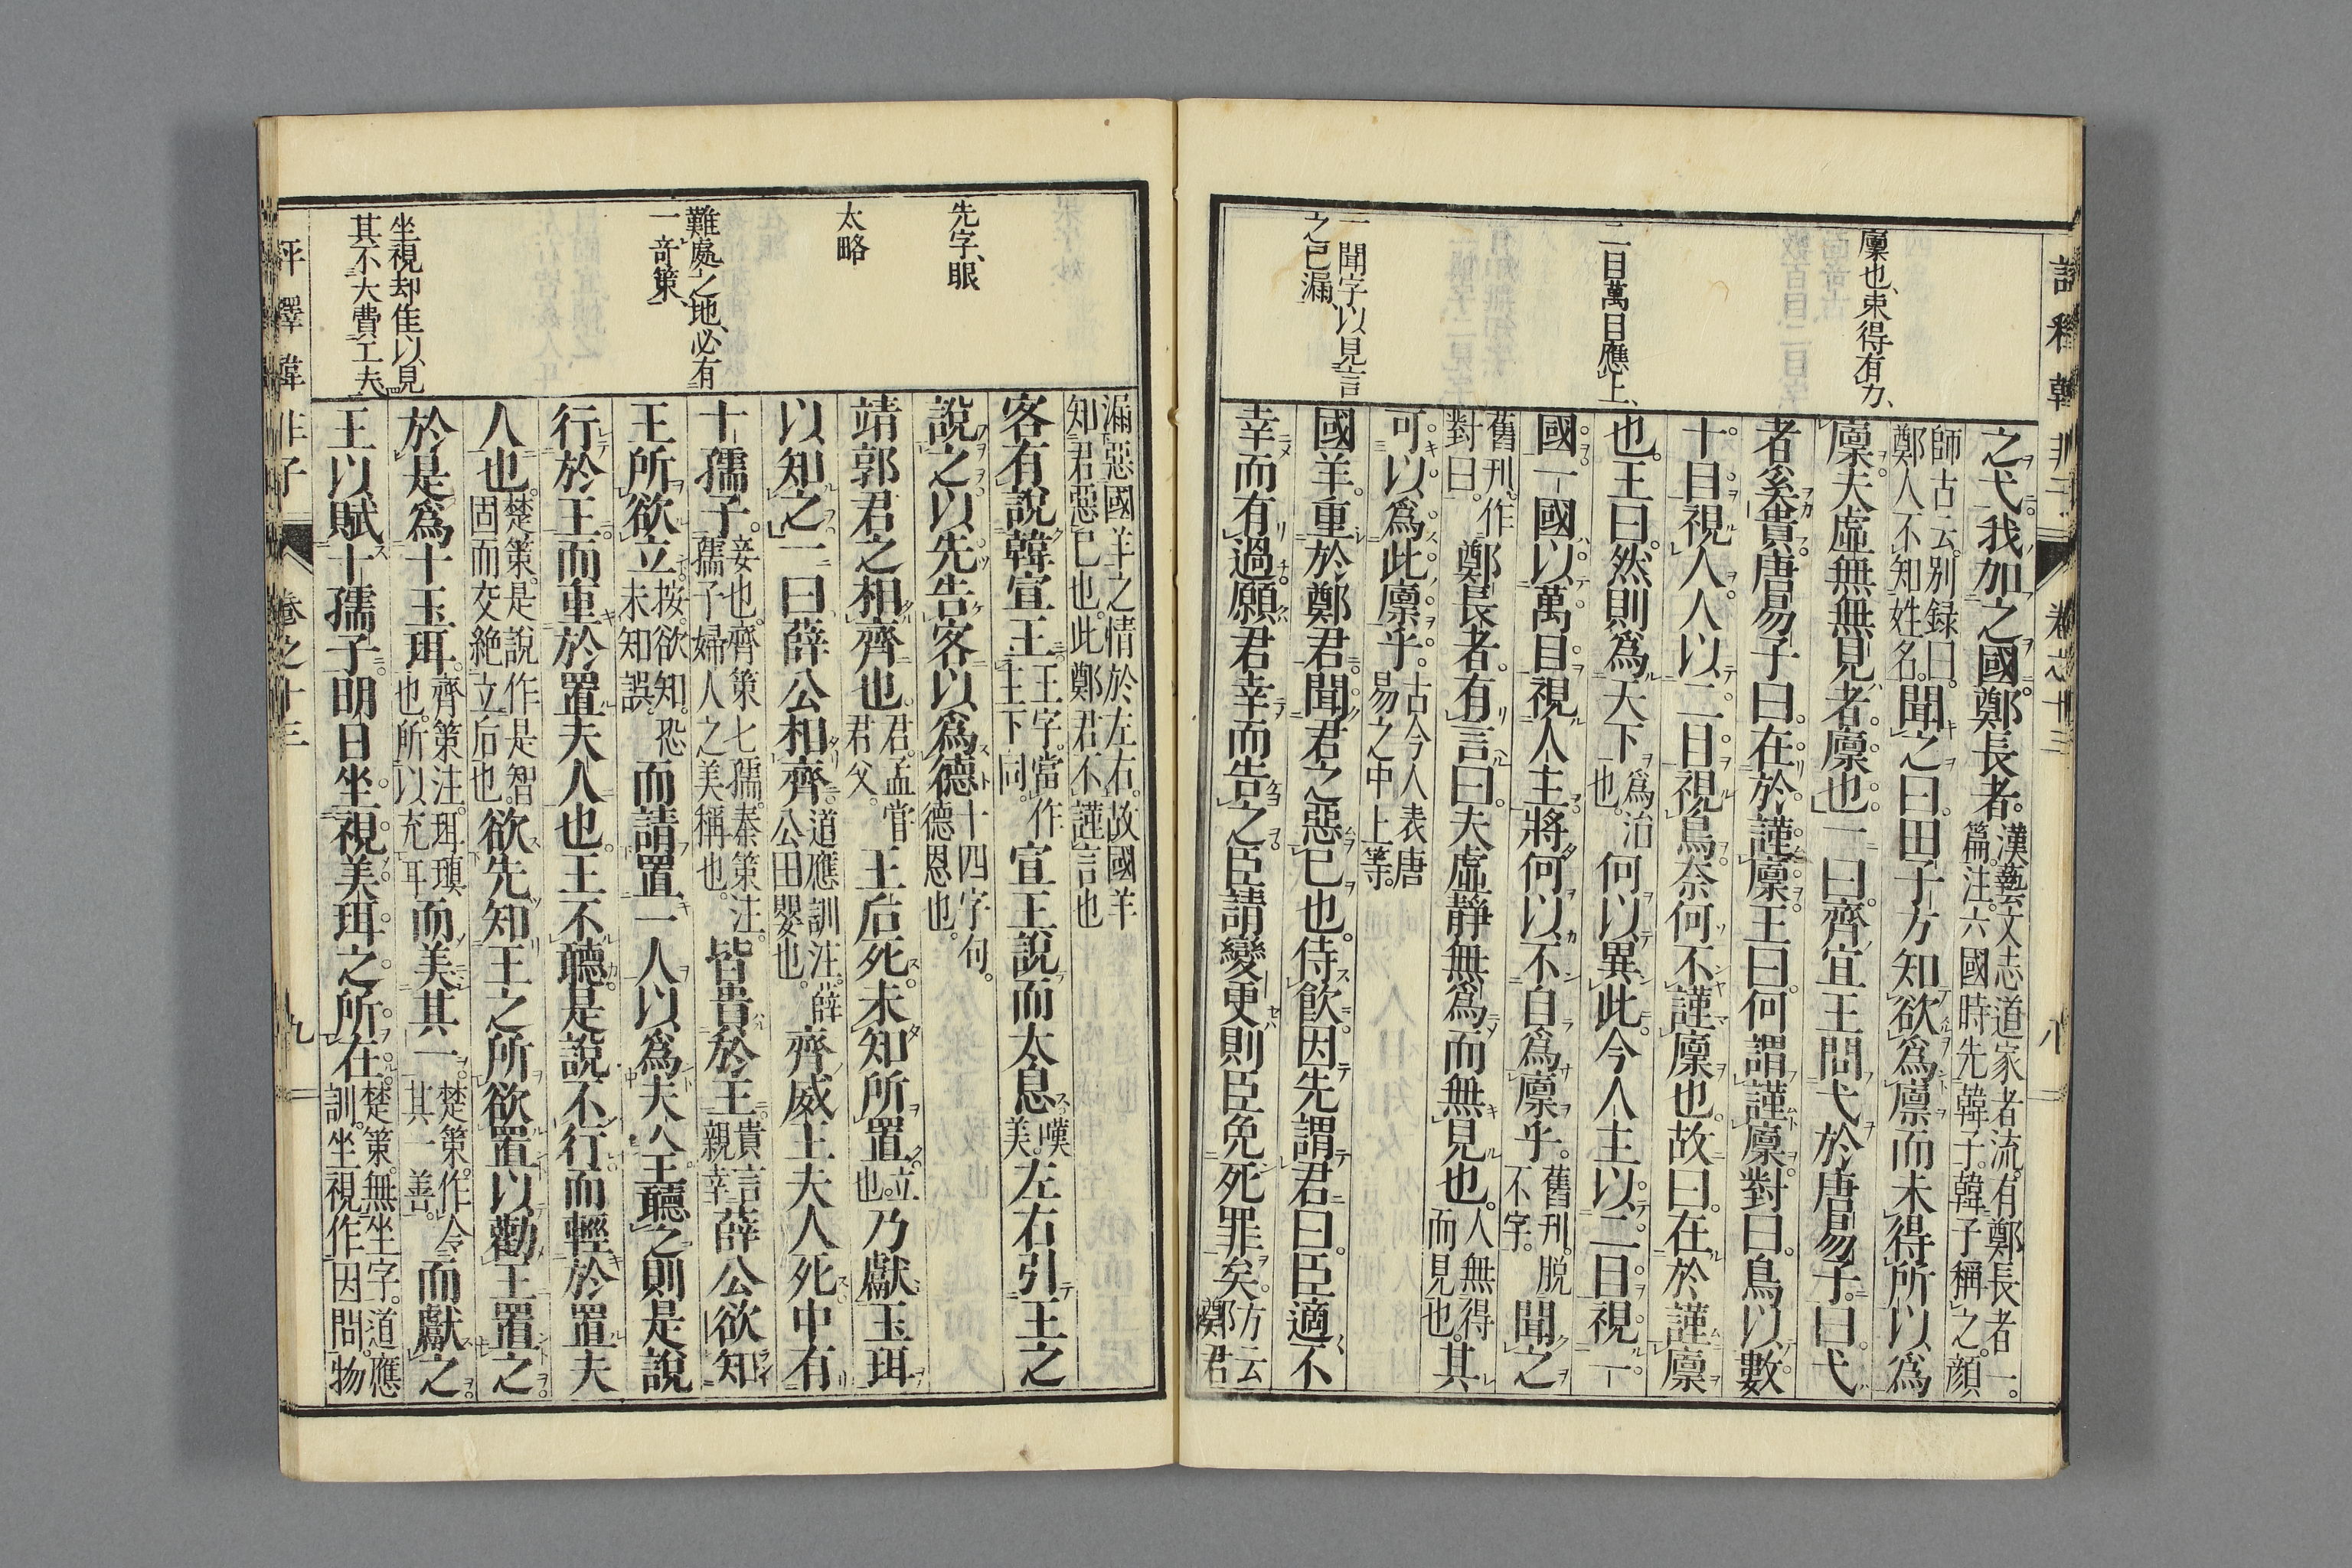 評釋韓非子 卷之十三 八
廩也、束得有力、
二目萬目應上、
一聞字、以見言
之已漏、
之弋我加之國。鄭長者。漢藝文志道家者流。有鄭長者一。篇。注。六國時先韓子。韓子稱之。顏
師古云。別録曰。鄭人不知姓名。聞之曰。田子方知欲爲廩而未得所以爲
廩。夫虛無無見者。廩也。一曰。齊宣王問弋於唐易子。曰。弋
者奚貴。唐易子曰。在於謹廩。王曰。何謂謹廩。對曰。鳥以數
十目視人。人以二目視鳥。奈何不謹廩也。故曰。在於謹廩
也。王曰。然則爲天下爲治也。何以異此。今人主以二目視一
國。一國以萬目視人主。將何以不自爲廩乎。舊刊。脱不字。聞之
舊刊。作對曰。鄭長者。有言曰。夫虛靜無爲而無見也。人無得而見也。其
可以爲此廩乎。古今人表唐易之中上等。
國羊重於鄭君。聞君之惡己也。侍飮。因先謂君曰。臣適不
幸而有過。願君幸而告之。臣請變更。則臣免死罪矣。方云鄭君
漏惡國羊之情於左右。故國羊知君惡己也。此鄭君不謹言也
客有說韓宣王。王字。當作主下同。宣王說而太息。嘆美。左右引王之
說之。以先告客以爲德。十四字句。德恩也。
靖郭君之相齊也。君。孟嘗君父。王后死。未知所置。立也。乃獻玉珥
以知之。一曰。薛公相齊。道應訓注。薛公田嬰也。齊威王夫人死。中有
十孺子。妾也。齊策七孺。秦策注。孺子婦人之美稱也。皆貴於王。貴言親幸薛公欲知
王所欲立。按。欲知。恐未知誤。而請置一人以爲夫人。王聽之。則是說
行於王。而重於置夫人也。王不聽。是說不行。而輕於置夫
人也。楚策。是說作是智固而交絶立后也。欲先知王之所欲置。以勸王置之。
於是爲十玉珥。齊策注。珥瑱也。所以充耳而美其一。楚策。作令其一善。而獻之。
王以賦十孺子。明日坐。視美珥之所在。楚策。無坐字。道應訓。坐視作因問。物
先字、眼
太略
難處之地、必有
一奇策、
坐視却佳、以見
其不大費工夫
評釋韓非子 卷之十三 九